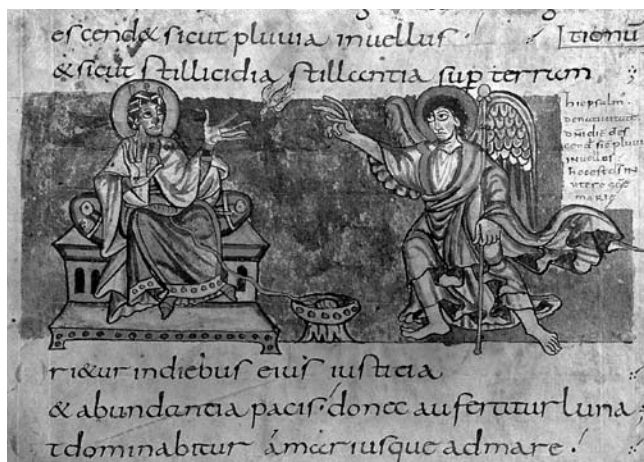 escend& sicut pluuia inuellus · [tionu
& sicut stillicidia stillantia sup terram
hic psalm
denatiuitate
dni dic des
cend sic pluui
inuelles
hoc est ds in
utero sce
marie
ri&ur indiebus eius iusticia
& abundantia pacis · donec aufertitur luna
tdominabitur amari usque admare ·